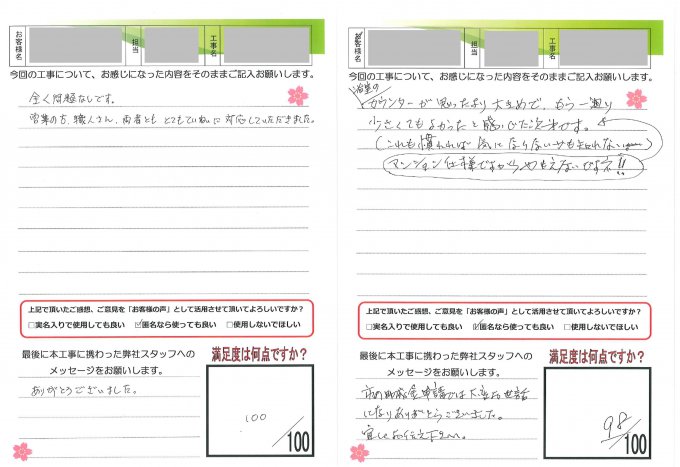 お客様名
担当
工事名
今回の工事について、お感じになった内容をそのままご記入お願いします。
全く問題なしです。
営業の方、職人さん、両者ともとてもていねいに対応していただきました。
上記で頂いたご感想、ご意見を「お客様の声」として活用させて頂いてよろしいですか？
□実名入りで使用しても良い ☑匿名なら使っても良い □使用しないでほしい
最後に本工事に携わった弊社スタッフへの
メッセージをお願いします。
ありがとうございました。
満足度は何点ですか？
100
/100
お客様名
担当
工事名
今回の工事について、お感じになった内容をそのままご記入お願いします。
浴室の
カウンターが思ったより大きめで、もう一廻り
小さくてもよかったと感じた次第です。
(これも慣れれば気にならないかも知れない)
マンション仕様ですからやむもえないですネ!!
上記で頂いたご感想、ご意見を「お客様の声」として活用させて頂いてよろしいですか？
□実名入りで使用しても良い ☑匿名なら使っても良い □使用しないでほしい
最後に本工事に携わった弊社スタッフへの
メッセージをお願いします。
市の助成金申請では大変お世話
になりありがとうございました。
宜しくお伝え下さい。
満足度は何点ですか？
98
/100